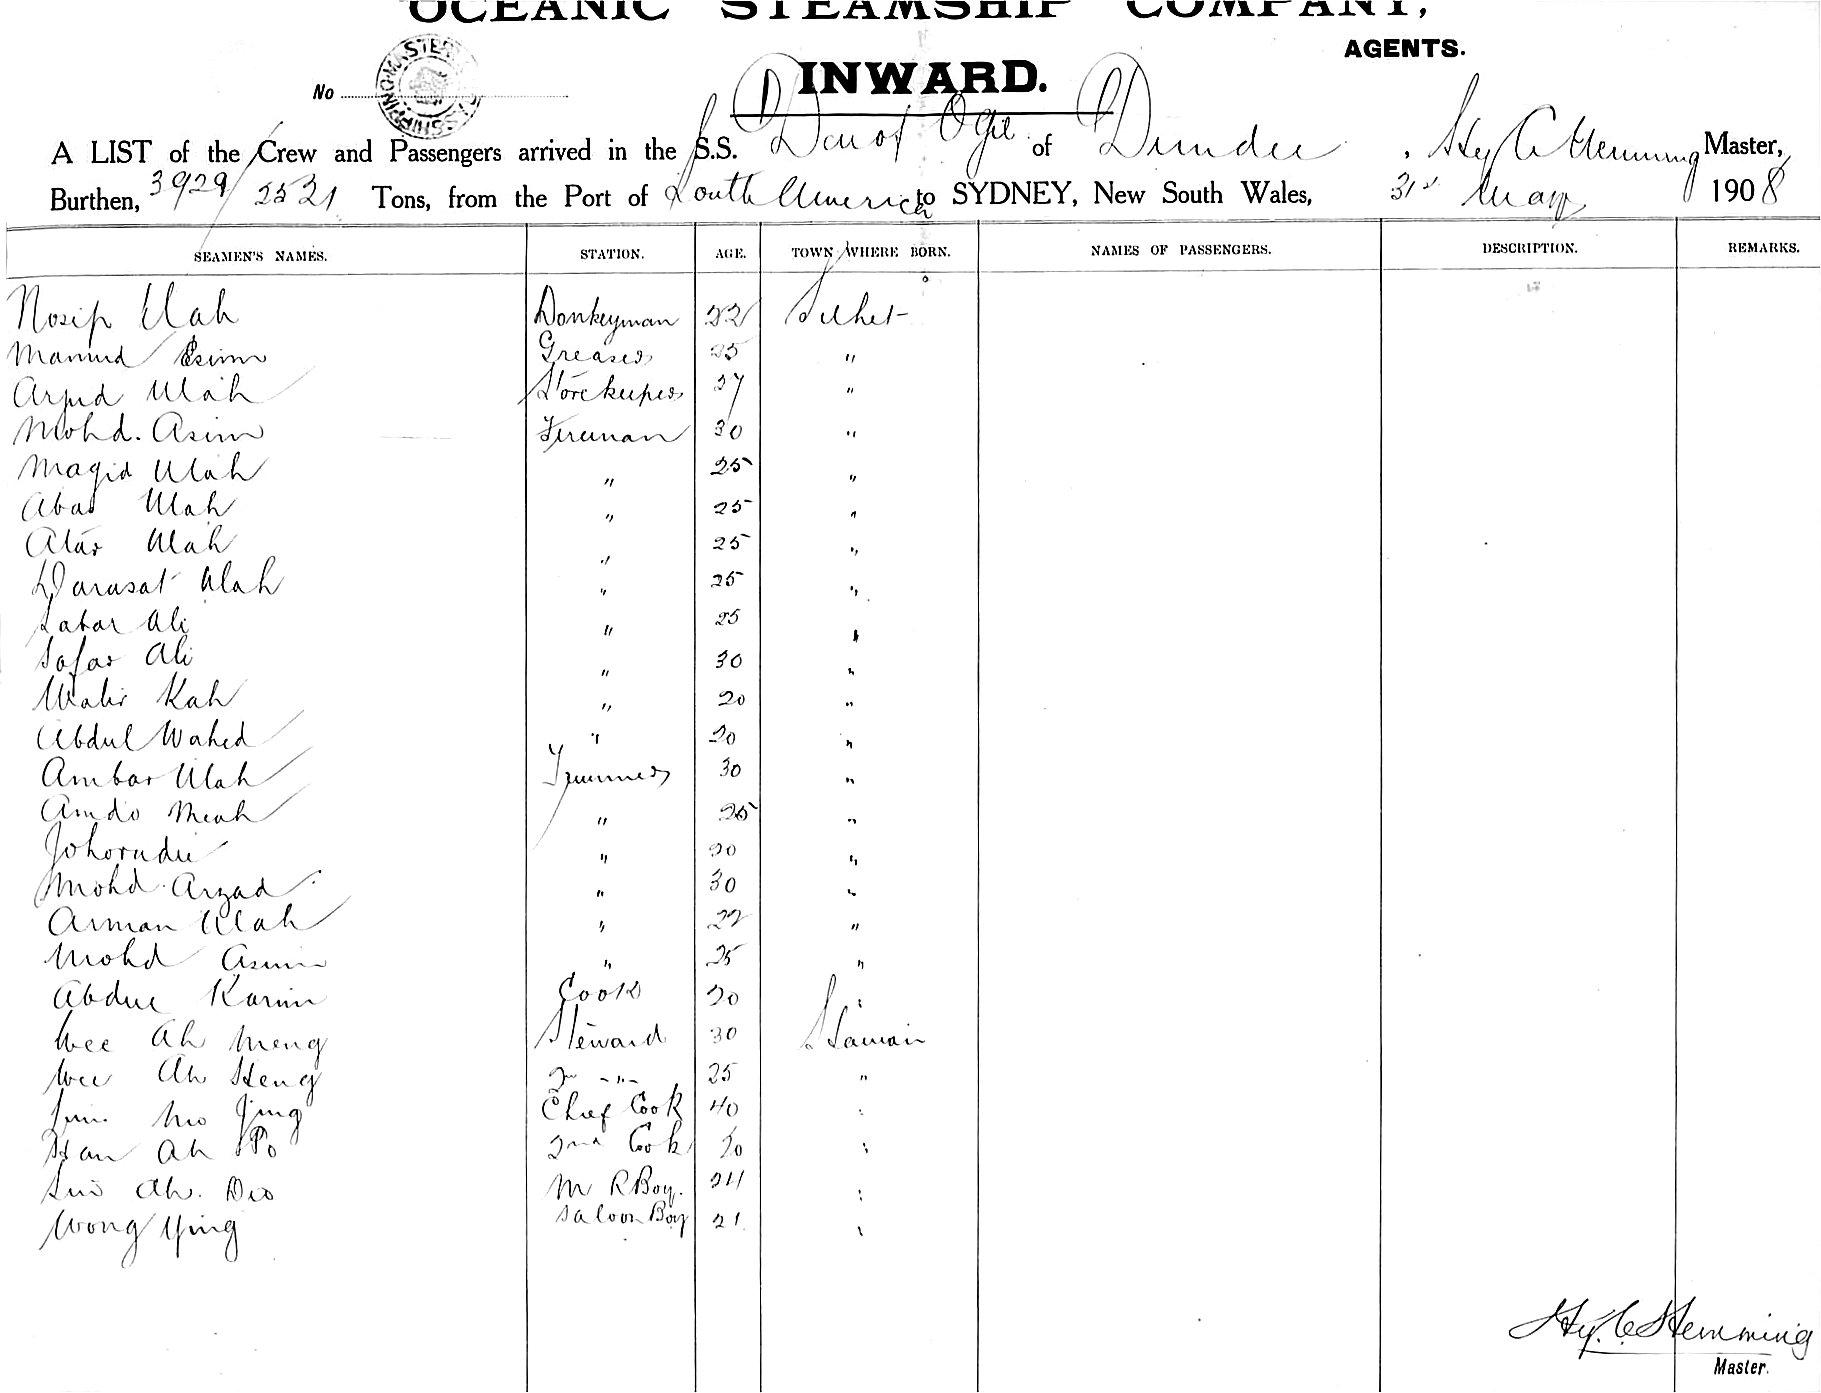 OCEANIC STEAMSHIP COMPANY,
AGENTS.
INWARD.
No
A LIST of the Crew and Passengers arrived in the S.S. Den of Ogil of Dundee , Hy C Hemming Master,
Burthen, 3929/2531 Tons, from the Port of South America to SYDNEY, New South Wales, 31st May 1908
SEAMEN'S NAMES. STATION. AGE. TOWN WHERE BORN. NAMES OF PASSENGERS. DESCRIPTION. REMARKS.
Nosip Ulah Donkeyman 22 Silhet
Mamud Greaser 25 "
Ulah Storekeeper 27 "
Mohd. Asim Fireman 30 "
Magid Ulah " 25 "
Abas Ulah " 25 "
Atar Ulah " 25 "
Darasat Ulah " 25 "
Sabar Ali " 25 "
Safar Ali " 30 "
Kah " 20 "
Abdul Wahed " 20 "
Ambar Ulah Trimmer 30 "
Amdo Meah " 25 "
" 20 "
Mohd. Arzad " 30 "
Arman Ulah " 22 "
Mohd Asim " 25 "
Abdul Karim Cook 20 "
Wee Ah Meng Steward 30
Wee Ah Heng 2nd -"- 25 "
Chief Cook 40 "
Han Ah Po 2nd Cook 20 "
Ah. M R Boy. 24 "
Wong Ying Saloon Boy 21 "
Hy. C Hemming
Master.